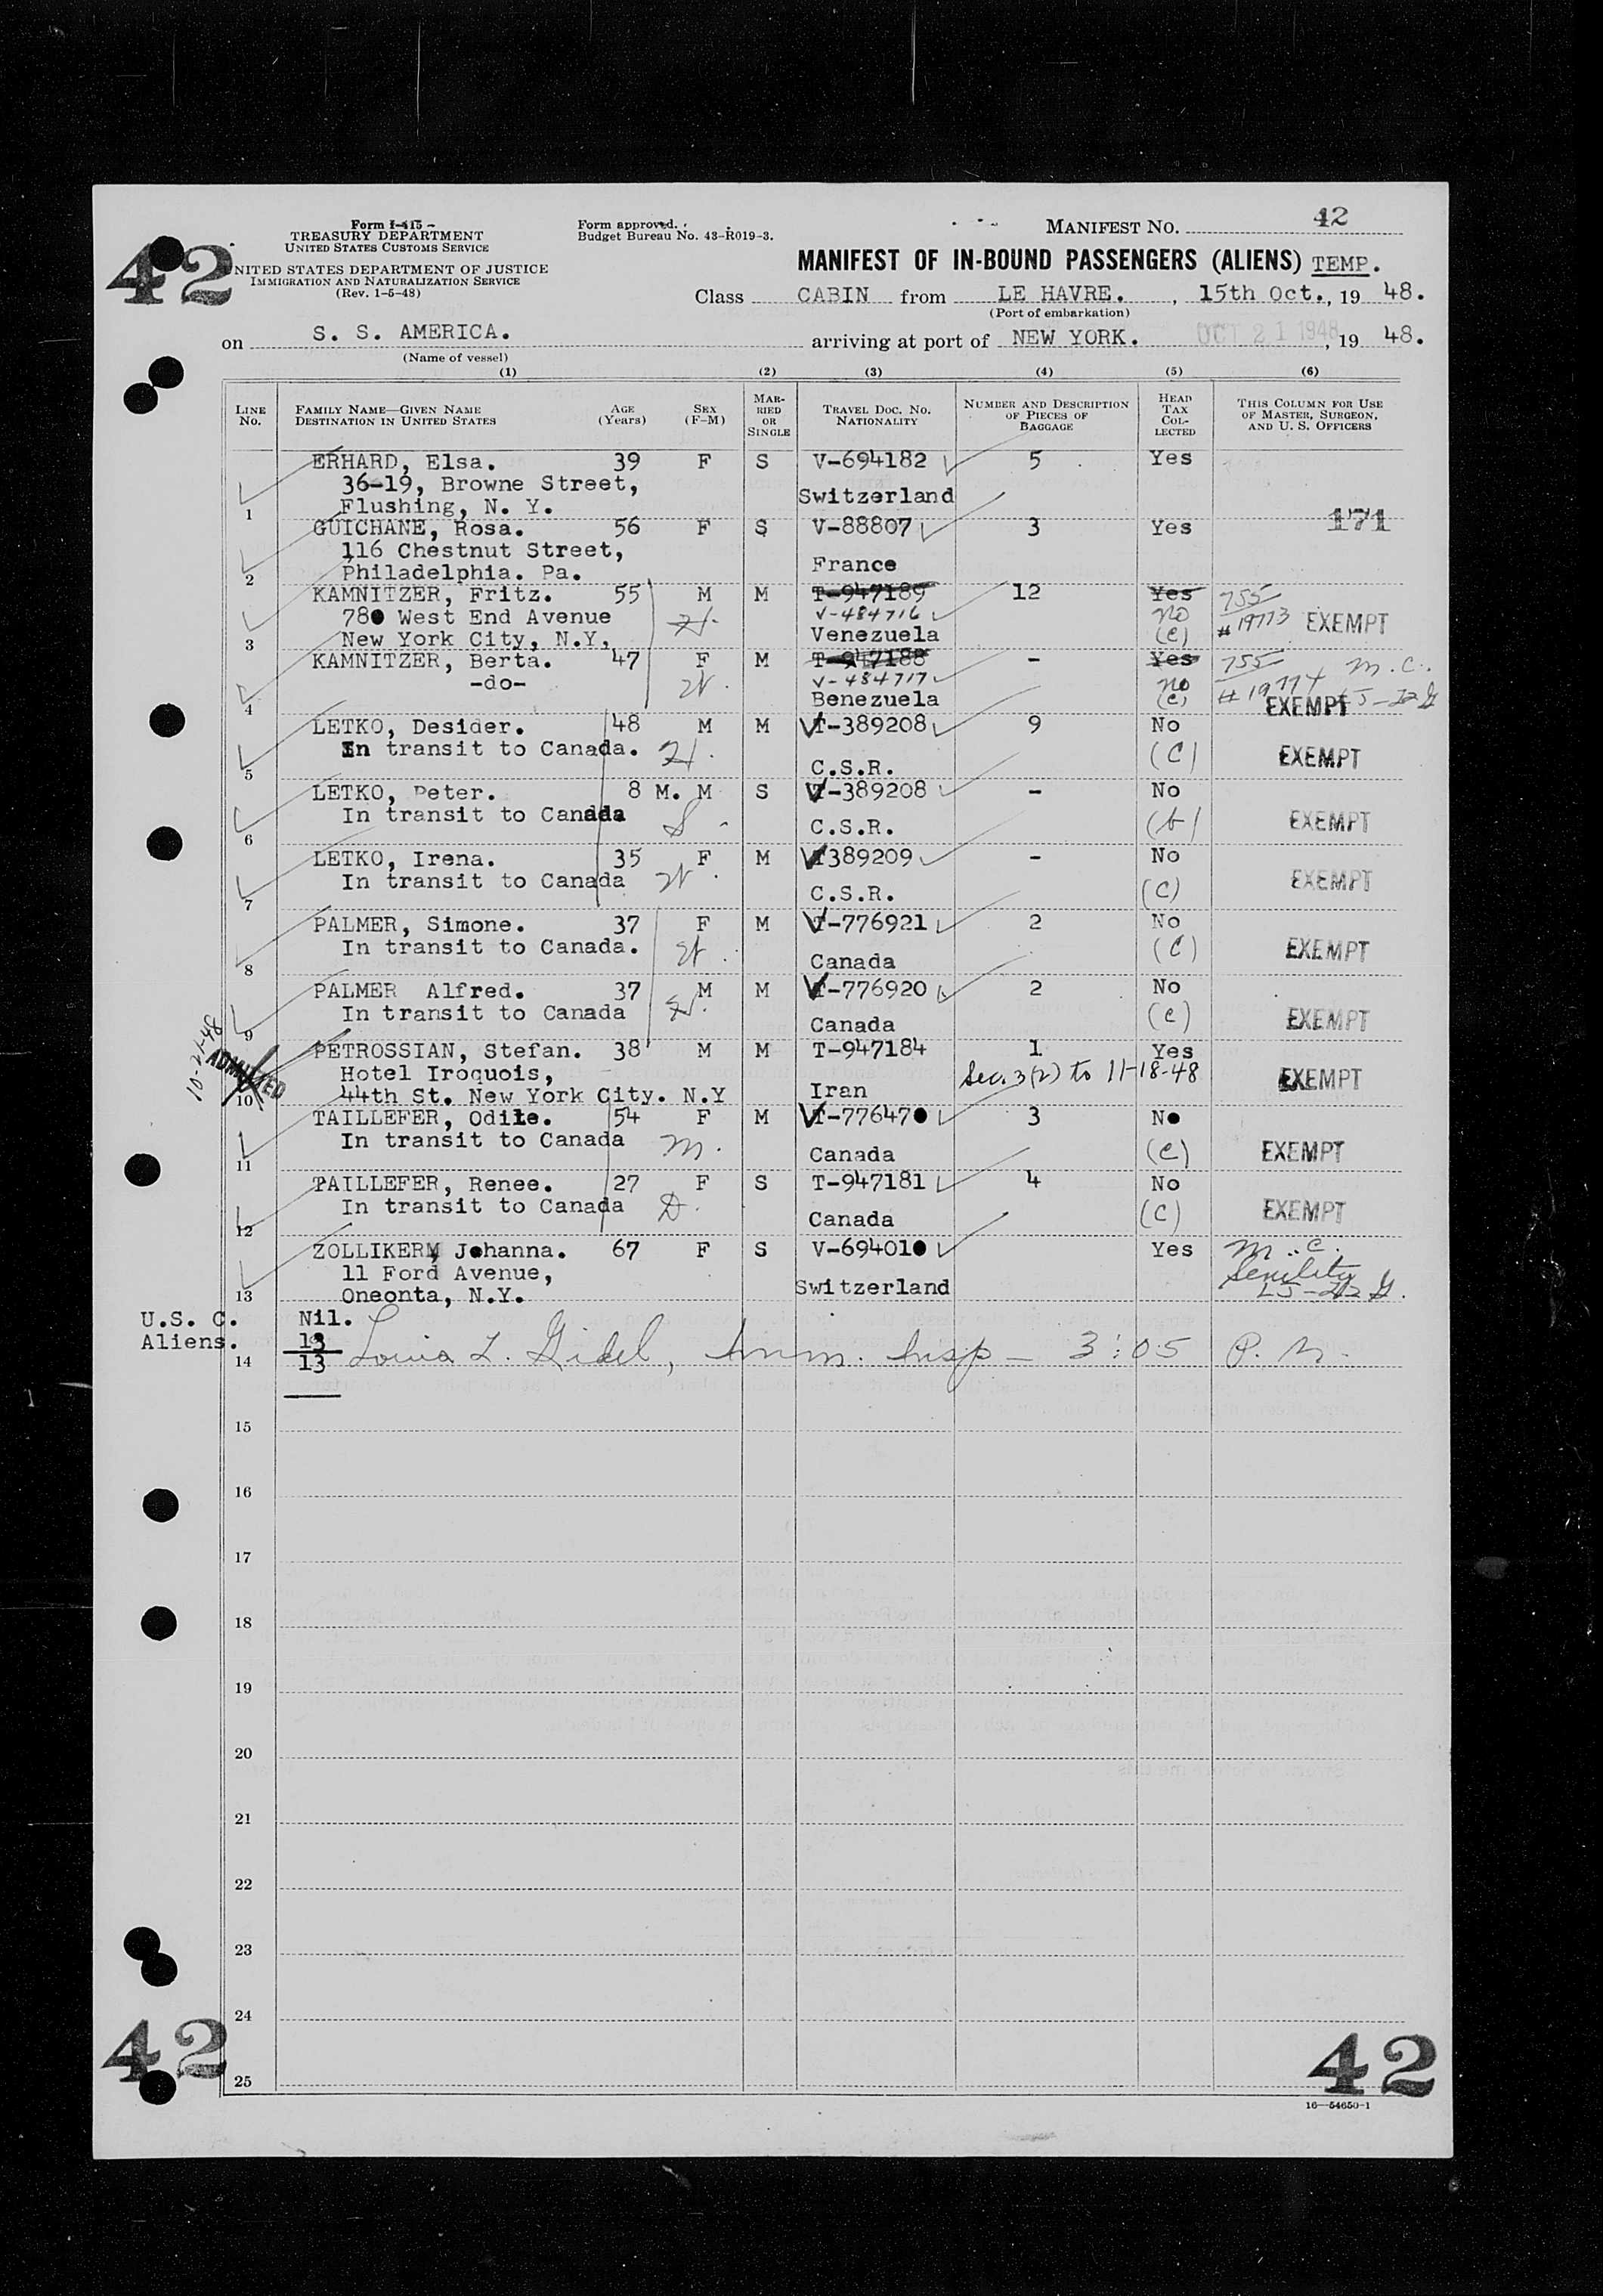 Form I-415
TREASURY DEPARTMENT
UNITED STATES CUSTOMS SERVICE
Form approved.
Budget Bureau No. 43-R019-3.
MANIFEST NO. 42
42
UNITED STATES DEPARTMENT OF JUSTICE
IMMIGRATION AND NATURALIZATION SERVICE
(Rev. 1-5-48)
MANIFEST OF IN-BOUND PASSENGERS (ALIENS) TEMP.
Class CABIN from LE HAVRE. , 15th Oct., 19 48.
(Port of embarkation)
on S. S. AMERICA. arriving at port of NEW YORK. OCT 21 1948 , 19 48.
(Name of vessel)
(1) (2) (3) (4) (5) (6)
LINE No. FAMILY NAME—GIVEN NAME DESTINATION IN UNITED STATES AGE (Years) SEX (F-M) MARRIED OR SINGLE TRAVEL DOC. NO. NATIONALITY NUMBER AND DESCRIPTION OF PIECES OF BAGGAGE HEAD TAX COLLECTED THIS COLUMN FOR USE OF MASTER, SURGEON, AND U. S. OFFICERS
ERHARD, Elsa. 39 F S V-694182 5 Yes
36-19, Browne Street, Switzerland
1 Flushing, N. Y.
GUICHANE, Rosa. 56 F S V-88807 3 Yes 171
116 Chestnut Street, France
2 Philadelphia. Pa.
KAMNITZER, Fritz. 55 M M T-947189 12 Yes 755
780 West End Avenue H. V-484716 No #19773 EXEMPT
3 New York City, N.Y, Venezuela (c)
KAMNITZER, Berta. 47 F M T-947188 - Yes 755 M.C.
-do- W. V-484717 No
4 Benezuela (c) EXEMPT
LETKO, Desider. 48 M M V-389208 9 No
In transit to Canada. H. (c) EXEMPT
5 C.S.R.
LETKO, Peter. 8 M. M S V-389208 - No
In transit to Canada S. (b) EXEMPT
6 C.S.R.
LETKO, Irena. 35 F M V389209 - No
In transit to Canada W. (c) EXEMPT
7 C.S.R.
PALMER, Simone. 37 F M V-776921 2 No
In transit to Canada. W. (c) EXEMPT
8 Canada
PALMER Alfred. 37 M M V-776920 2 No
In transit to Canada H. (c) EXEMPT
9 Canada
10-21-48
ADMITTED
PETROSSIAN, Stefan. 38 M M T-947184 1 Yes
Hotel Iroquois, Iran Sec. 3(2) to 11-18-48 EXEMPT
10 44th St. New York City. N.Y
TAILLEFER, Odile. 54 F M V-776470 3 No
In transit to Canada M. (c) EXEMPT
11 Canada
TAILLEFER, Renee. 27 F S T-947181 4 No
In transit to Canada D. (c) EXEMPT
12 Canada
ZOLLIKER, Johanna. 67 F S V-694010 Yes M.C.
11 Ford Avenue, Switzerland Senility
13 Oneonta, N.Y.
U.S. C. Nil.
Aliens. 13
14 13 Louis L. Gidel, Imm. Insp - 3:05 P.M.
15
16
17
18
19
20
21
22
23
24
25
42
42
16—54650-1